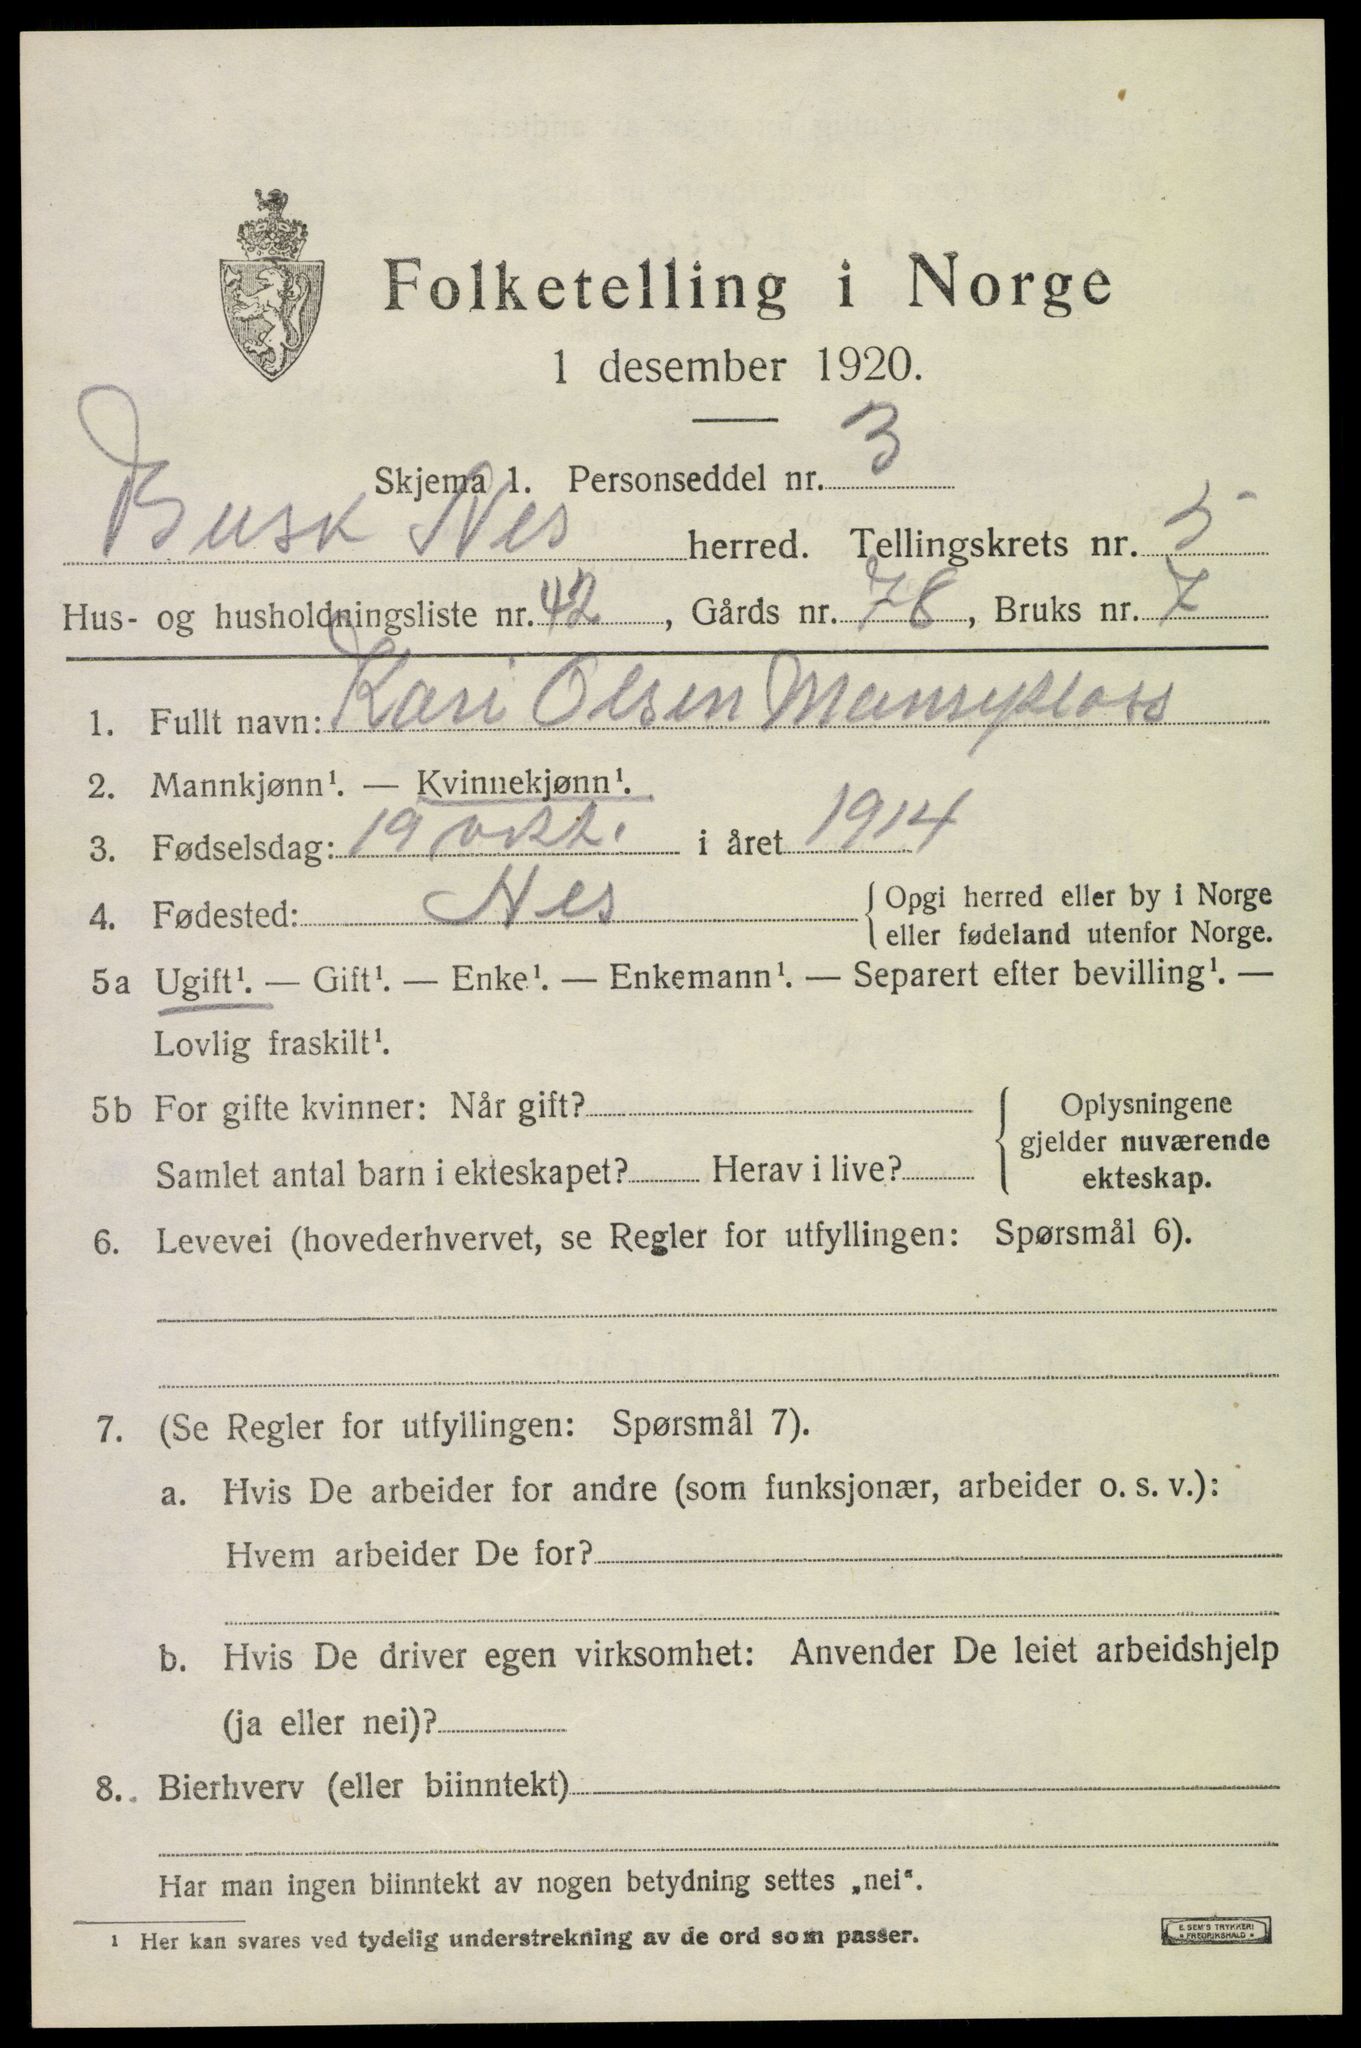 Folketelling i Norge
1 desember 1920.
Skjema 1. Personseddel nr. 3
Busk Nes herred. Tellingskrets nr. 5
Hus- og husholdningsliste nr. 42, Gårds nr. 78, Bruks nr. 7
1. Fullt navn: Kari Olsen
2. Mannkjønn¹. — Kvinnekjønn¹.
3. Fødselsdag: 19 okt. i året 1914
4. Fødested: Nes { Opgi herred eller by i Norge
eller fødeland utenfor Norge.
5a Ugift¹. — Gift¹. — Enke¹. — Enkemann¹. — Separert efter bevilling¹. —
Lovlig fraskilt¹.
5b For gifte kvinner: Når gift?
Samlet antal barn i ekteskapet? Herav i live?
{ Oplysningene
gjelder nuværende
ekteskap.
6. Levevei (hovederhvervet, se Regler for utfyllingen: Spørsmål 6).
7. (Se Regler for utfyllingen: Spørsmål 7).
a. Hvis De arbeider for andre (som funksjonær, arbeider o. s. v.):
Hvem arbeider De for?
b. Hvis De driver egen virksomhet: Anvender De leiet arbeidshjelp
(ja eller nei)?
8. Bierhverv (eller biinntekt)
Har man ingen biinntekt av nogen betydning settes „nei“.
¹ Her kan svares ved tydelig understrekning av de ord som passer.
E. SEM'S TRYKKERI
FREDRIKSHALD